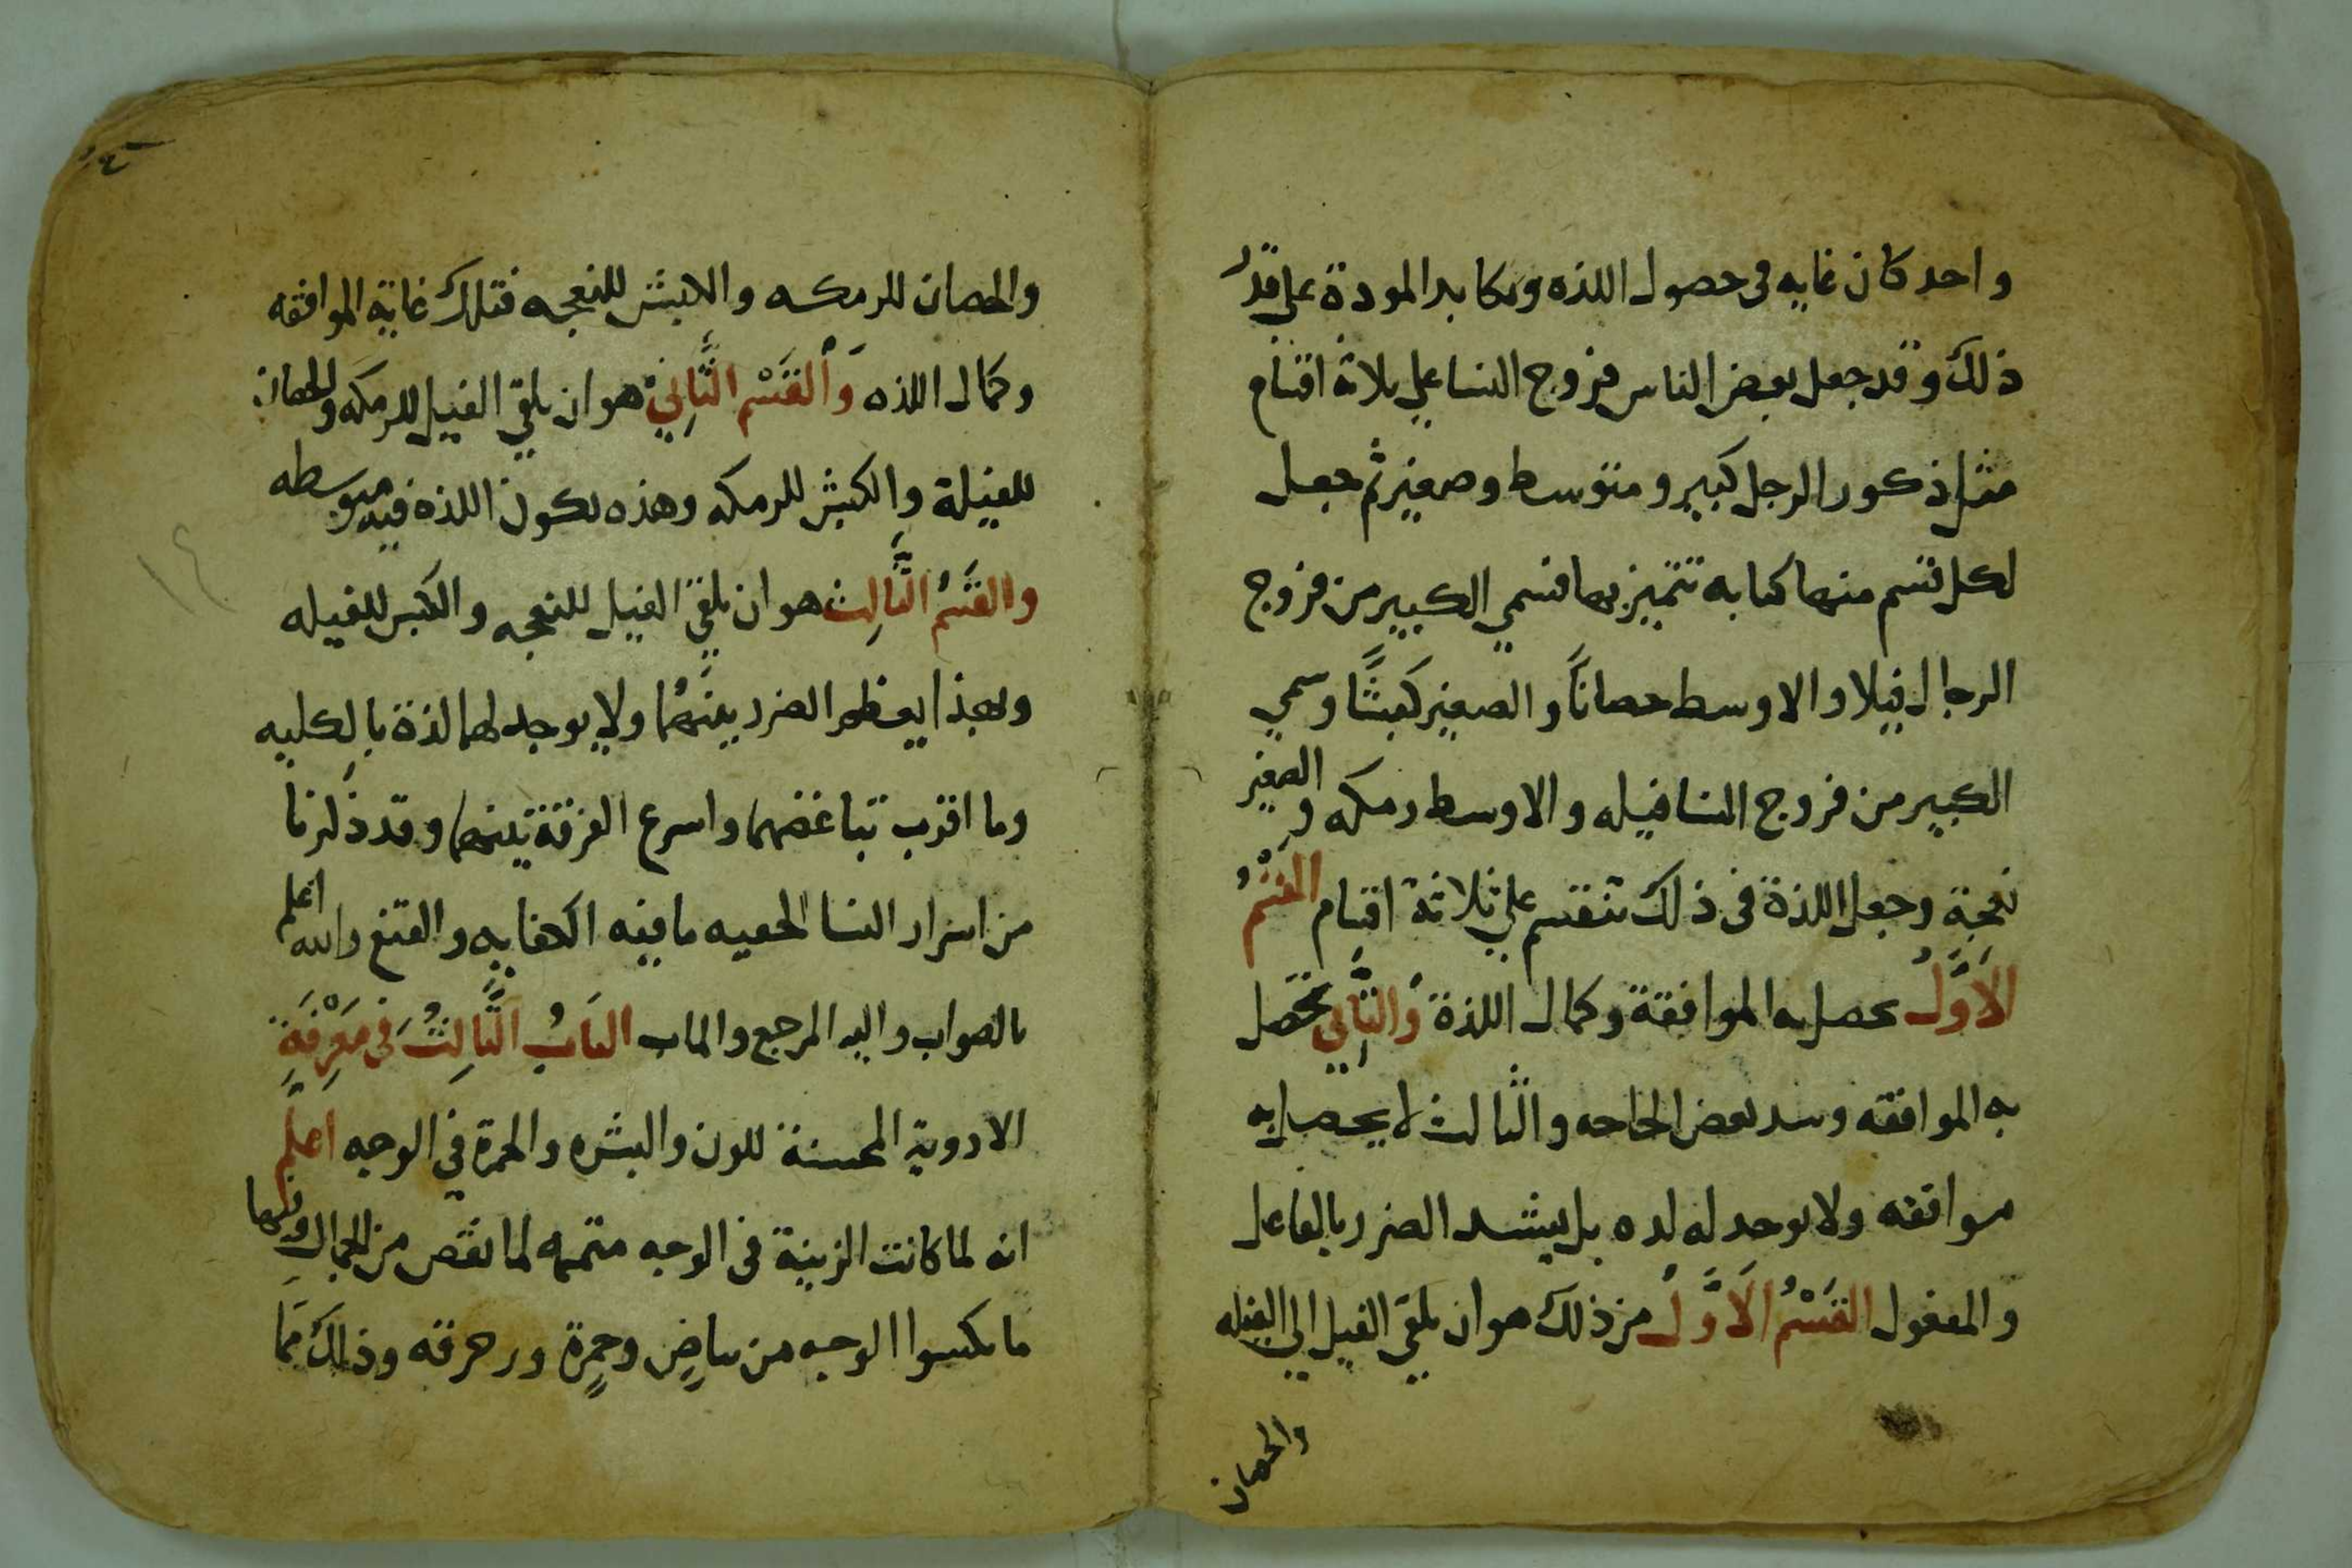 واحد كان غايه فى حصول اللذه ومكابد المودة على قدر
ذلك وقد جعل بعض الناس فروج النسا على ثلاثة اقسام
مثل ذكور الرجل كبير ومتوسط وصغير ثم جعل
لكل قسم منهما كنايه تتميز بها فسمي الكبير من فروج
الرجال فيلا والاوسط حصاناً والصغير كبشًا وسمي
الكبير من فروج النسا فيله والاوسط رمكه والصغير
نعجة وجعل اللذة فى ذلك تنقسم علي ثلاثة اقسام القسْمُ
الاَوَّلُ يحصل به الموافقة وكمال اللذة وَالثَّانِي تحَصل
به الموافقه وسد بعض الحاجه والثالث لا يحصل به
موافقه ولا يوجد له لذه بل يشد الضرر بالفاعل
والمفعول القَسْمُ الاَوَّلُ من ذلك هو ان يلقي الفيل الي الفيله
والحصان
٤٢
والحصان للرمكه والكبش للنعجه فتلك غاية الموافقه
وكمال اللذه وَالقَسْم الثَّانِيْ هو ان يلقي الفيل للرمكه والحصان
للفيلة والكبش للرمكه وهذه تكون اللذة فيه متوسطه
والقَسْمُ الثَّالِث هو ان يلقي الفيل للنعجه والكبش للفيله
وبهذا يعظم الضرر بينَهُما ولا يوجد لهما لذة بالكليه
وما اقرب تباغضهما واسرع الفرقة بينهما وقد ذَكرنا
من اسرار النسا الخفيه ما فيه الكفايه والقنع والله اعلم
بالصواب واليه المرجع والماب البَابُ الثَّالِثُ فى مَعْرِفَةِ
الادوية المحسنة للون والبشره والحمرة في الوجه اعلَم
انه لما كانت الزينة فى الوجه متممه لما نقص من الجمال
ما يكسوا الوجه من بياضٍ وحمرةٍ وذلك ممَّا